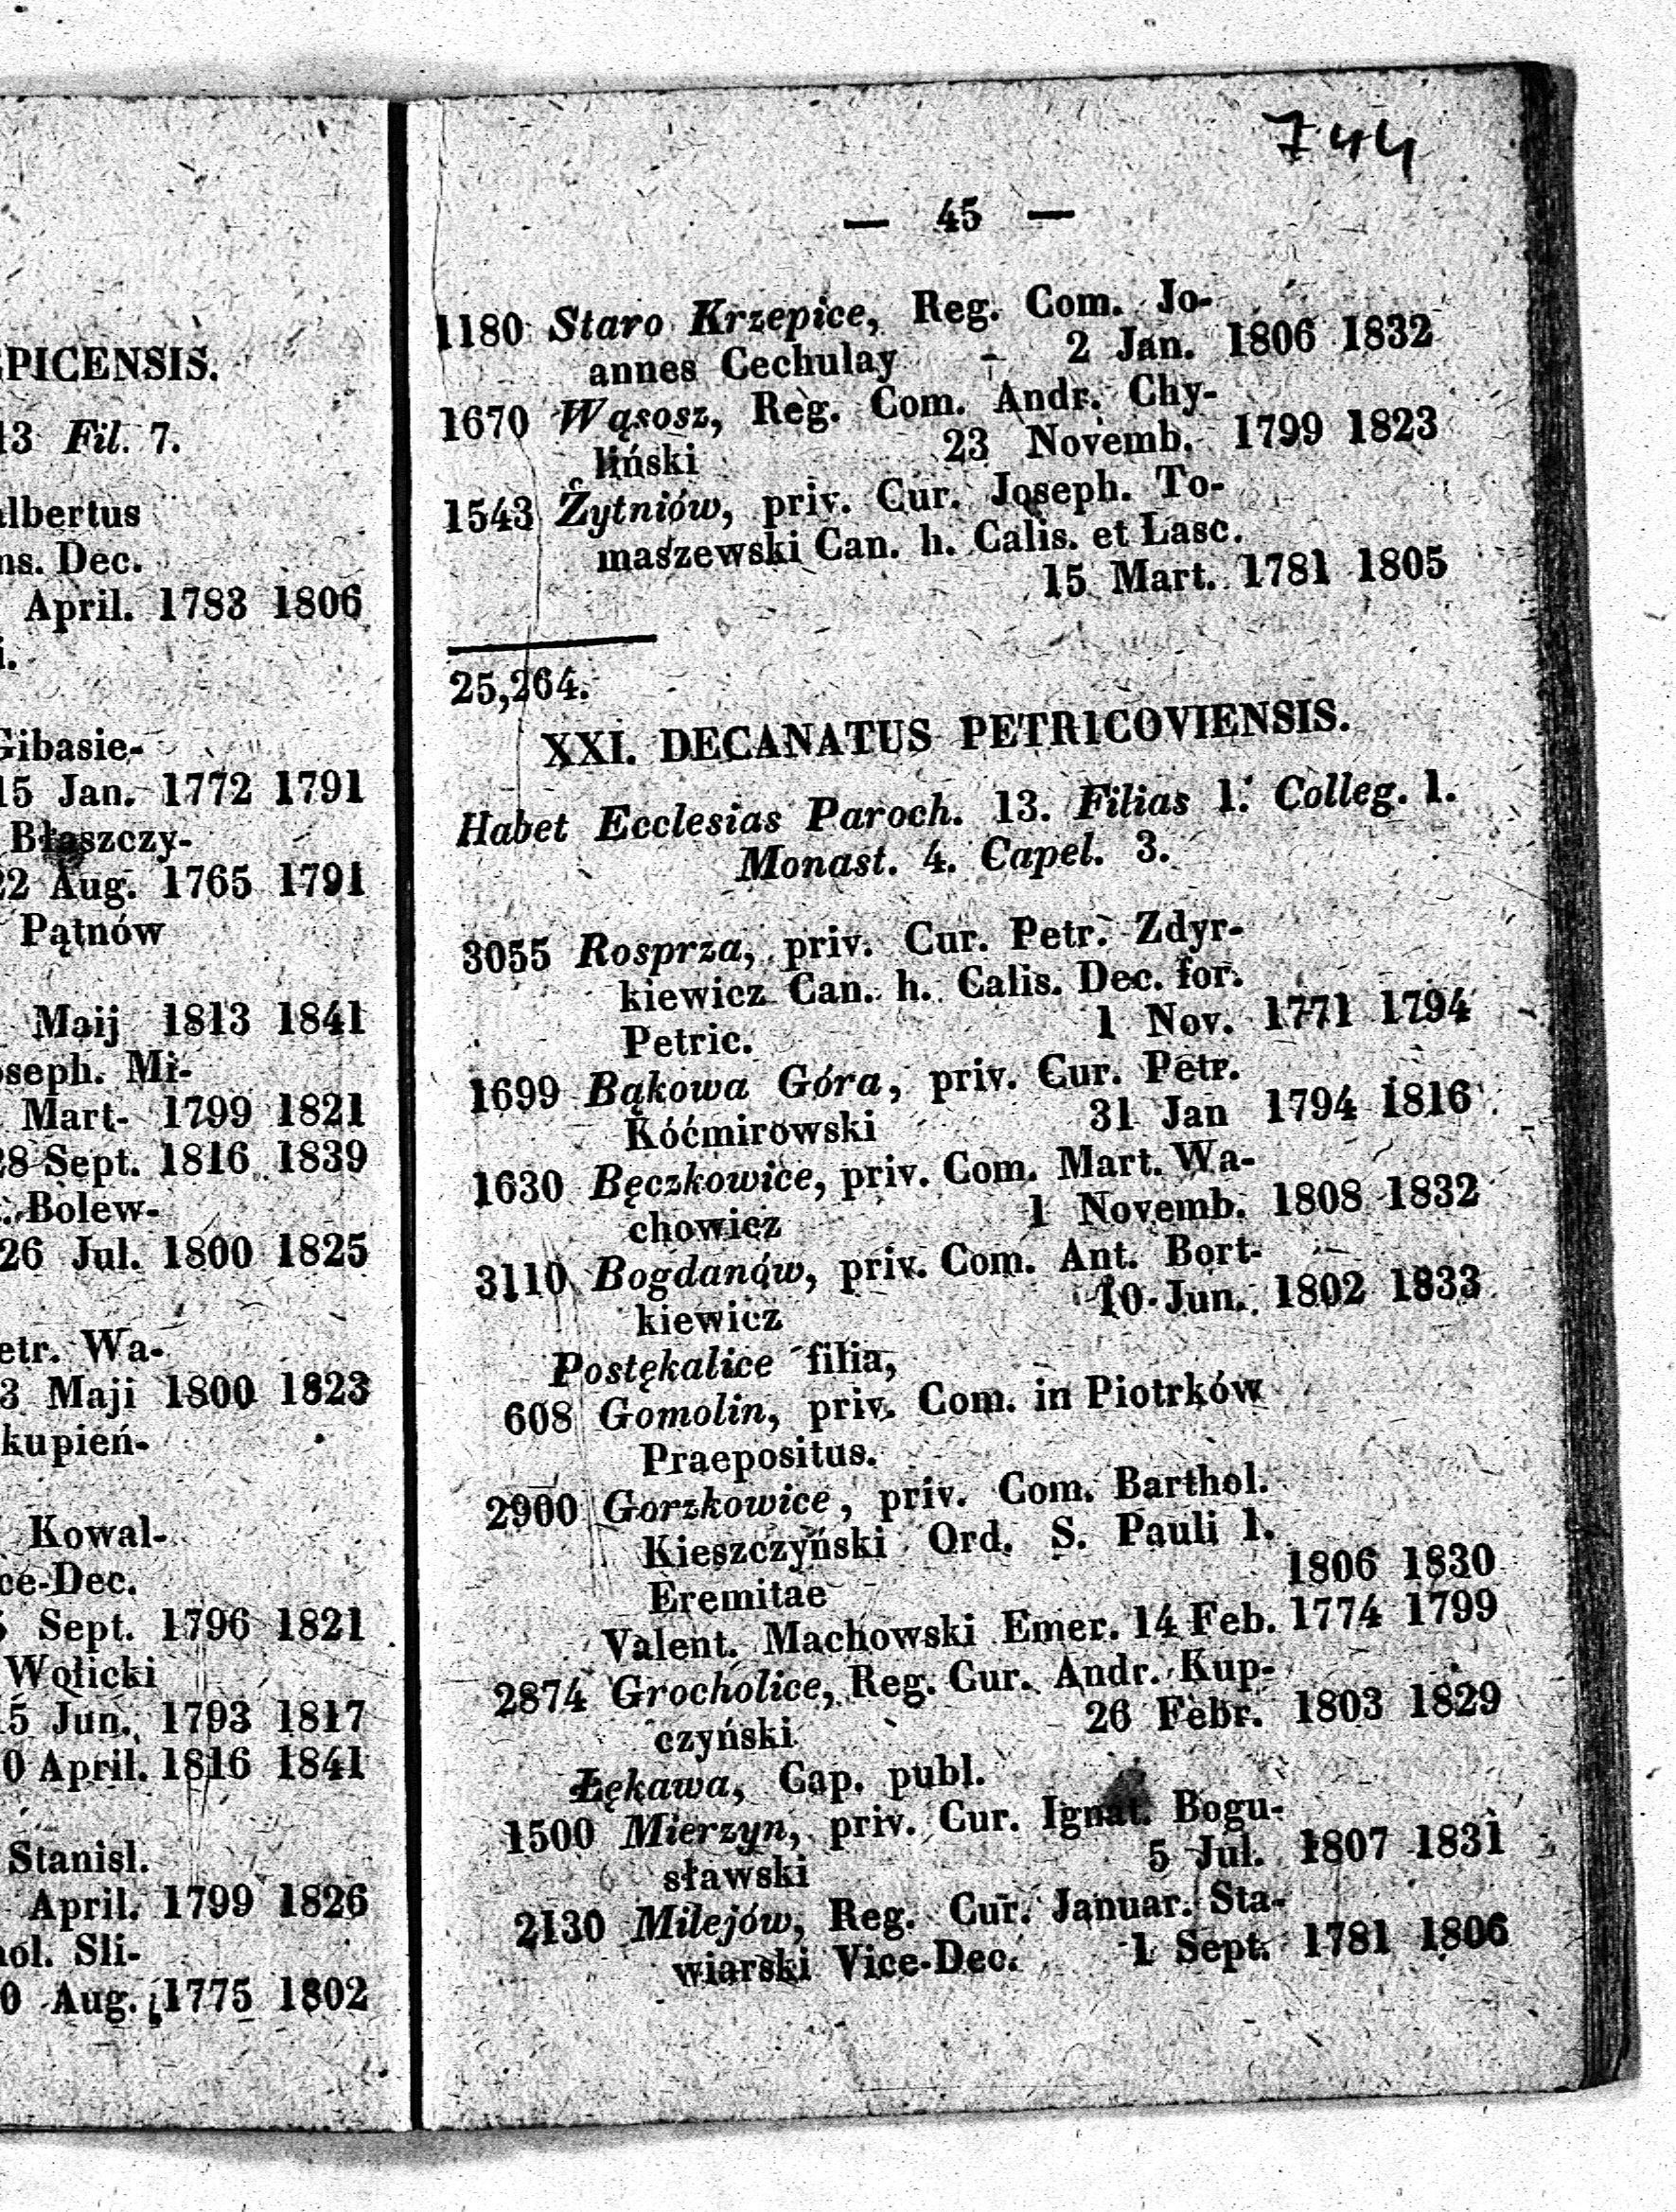 EPICENSIS.
13 Fil. 7.
albertus
ns. Dec.
April. 1783 1806
i.
Gibasie-
15 Jan. 1772 1791
Błaszczy-
22 Aug. 1765 1791
Pątnów
Maij 1813 1841
oseph. Mi-
Mart- 1799 1821
28 Sept. 1816 1839
Bolew-
26 Jul. 1800 1825
etr. Wa-
3 Maji 1800 1823
kupień-
Kowal-
ce-Dec.
Sept. 1796 1821
Wolicki
15 Jun. 1793 1817
0 April. 1816 1841
Stanisl.
April. 1799 1826
ol. Sli-
0 Aug. 1775 1802
744
— 45 —
1180 Staro Krzepice, Reg. Com. Jo-
annes Cechulay - 2 Jan. 1806 1832
1670 Wąsosz, Reg. Com. Andr. Chy-
liński 23 Novemb. 1799 1823
1543 Żytniów, priv. Cur. Joseph. To-
maszewski Can. h. Calis. et Lasc.
15 Mart. 1781 1805
25,264.
XXI. DECANATUS PETRICOVIENSIS.
Habet Ecclesias Paroch. 13. Filias 1. Colleg. 1.
Monast. 4. Capel. 3.
3055 Rosprza, priv. Cur. Petr. Zdyr-
kiewicz Can. h. Calis. Dec. for.
Petric. 1 Nov. 1771 1794
1699 Bąkowa Góra, priv. Cur. Petr.
Kóćmirowski 31 Jan 1794 1816
1630 Bęczkowice, priv. Com. Mart. Wa-
chowicz 1 Novemb. 1808 1832
3110 Bogdanów, priv. Com. Ant. Bort-
kiewicz 10 Jun. 1802 1833
Postękalice filia,
608 Gomolin, priv. Com. in Piotrków
Praepositus.
2900 Gorzkowice, priv. Com. Barthol.
Kieszczyński Ord. S. Pauli 1.
Eremitae 1806 1830
Valent. Machowski Emer. 14 Feb. 1774 1799
2874 Grocholice, Reg. Cur. Andr. Kup-
czyński 26 Febr. 1803 1829
Łękawa, Cap. publ.
1500 Mierzyn, priv. Cur. Ignat. Bogu-
sławski 5 Jul. 1807 1831
2130 Milejów, Reg. Cur. Januar. Sta-
wiarski Vice-Dec. 1 Sept. 1781 1806